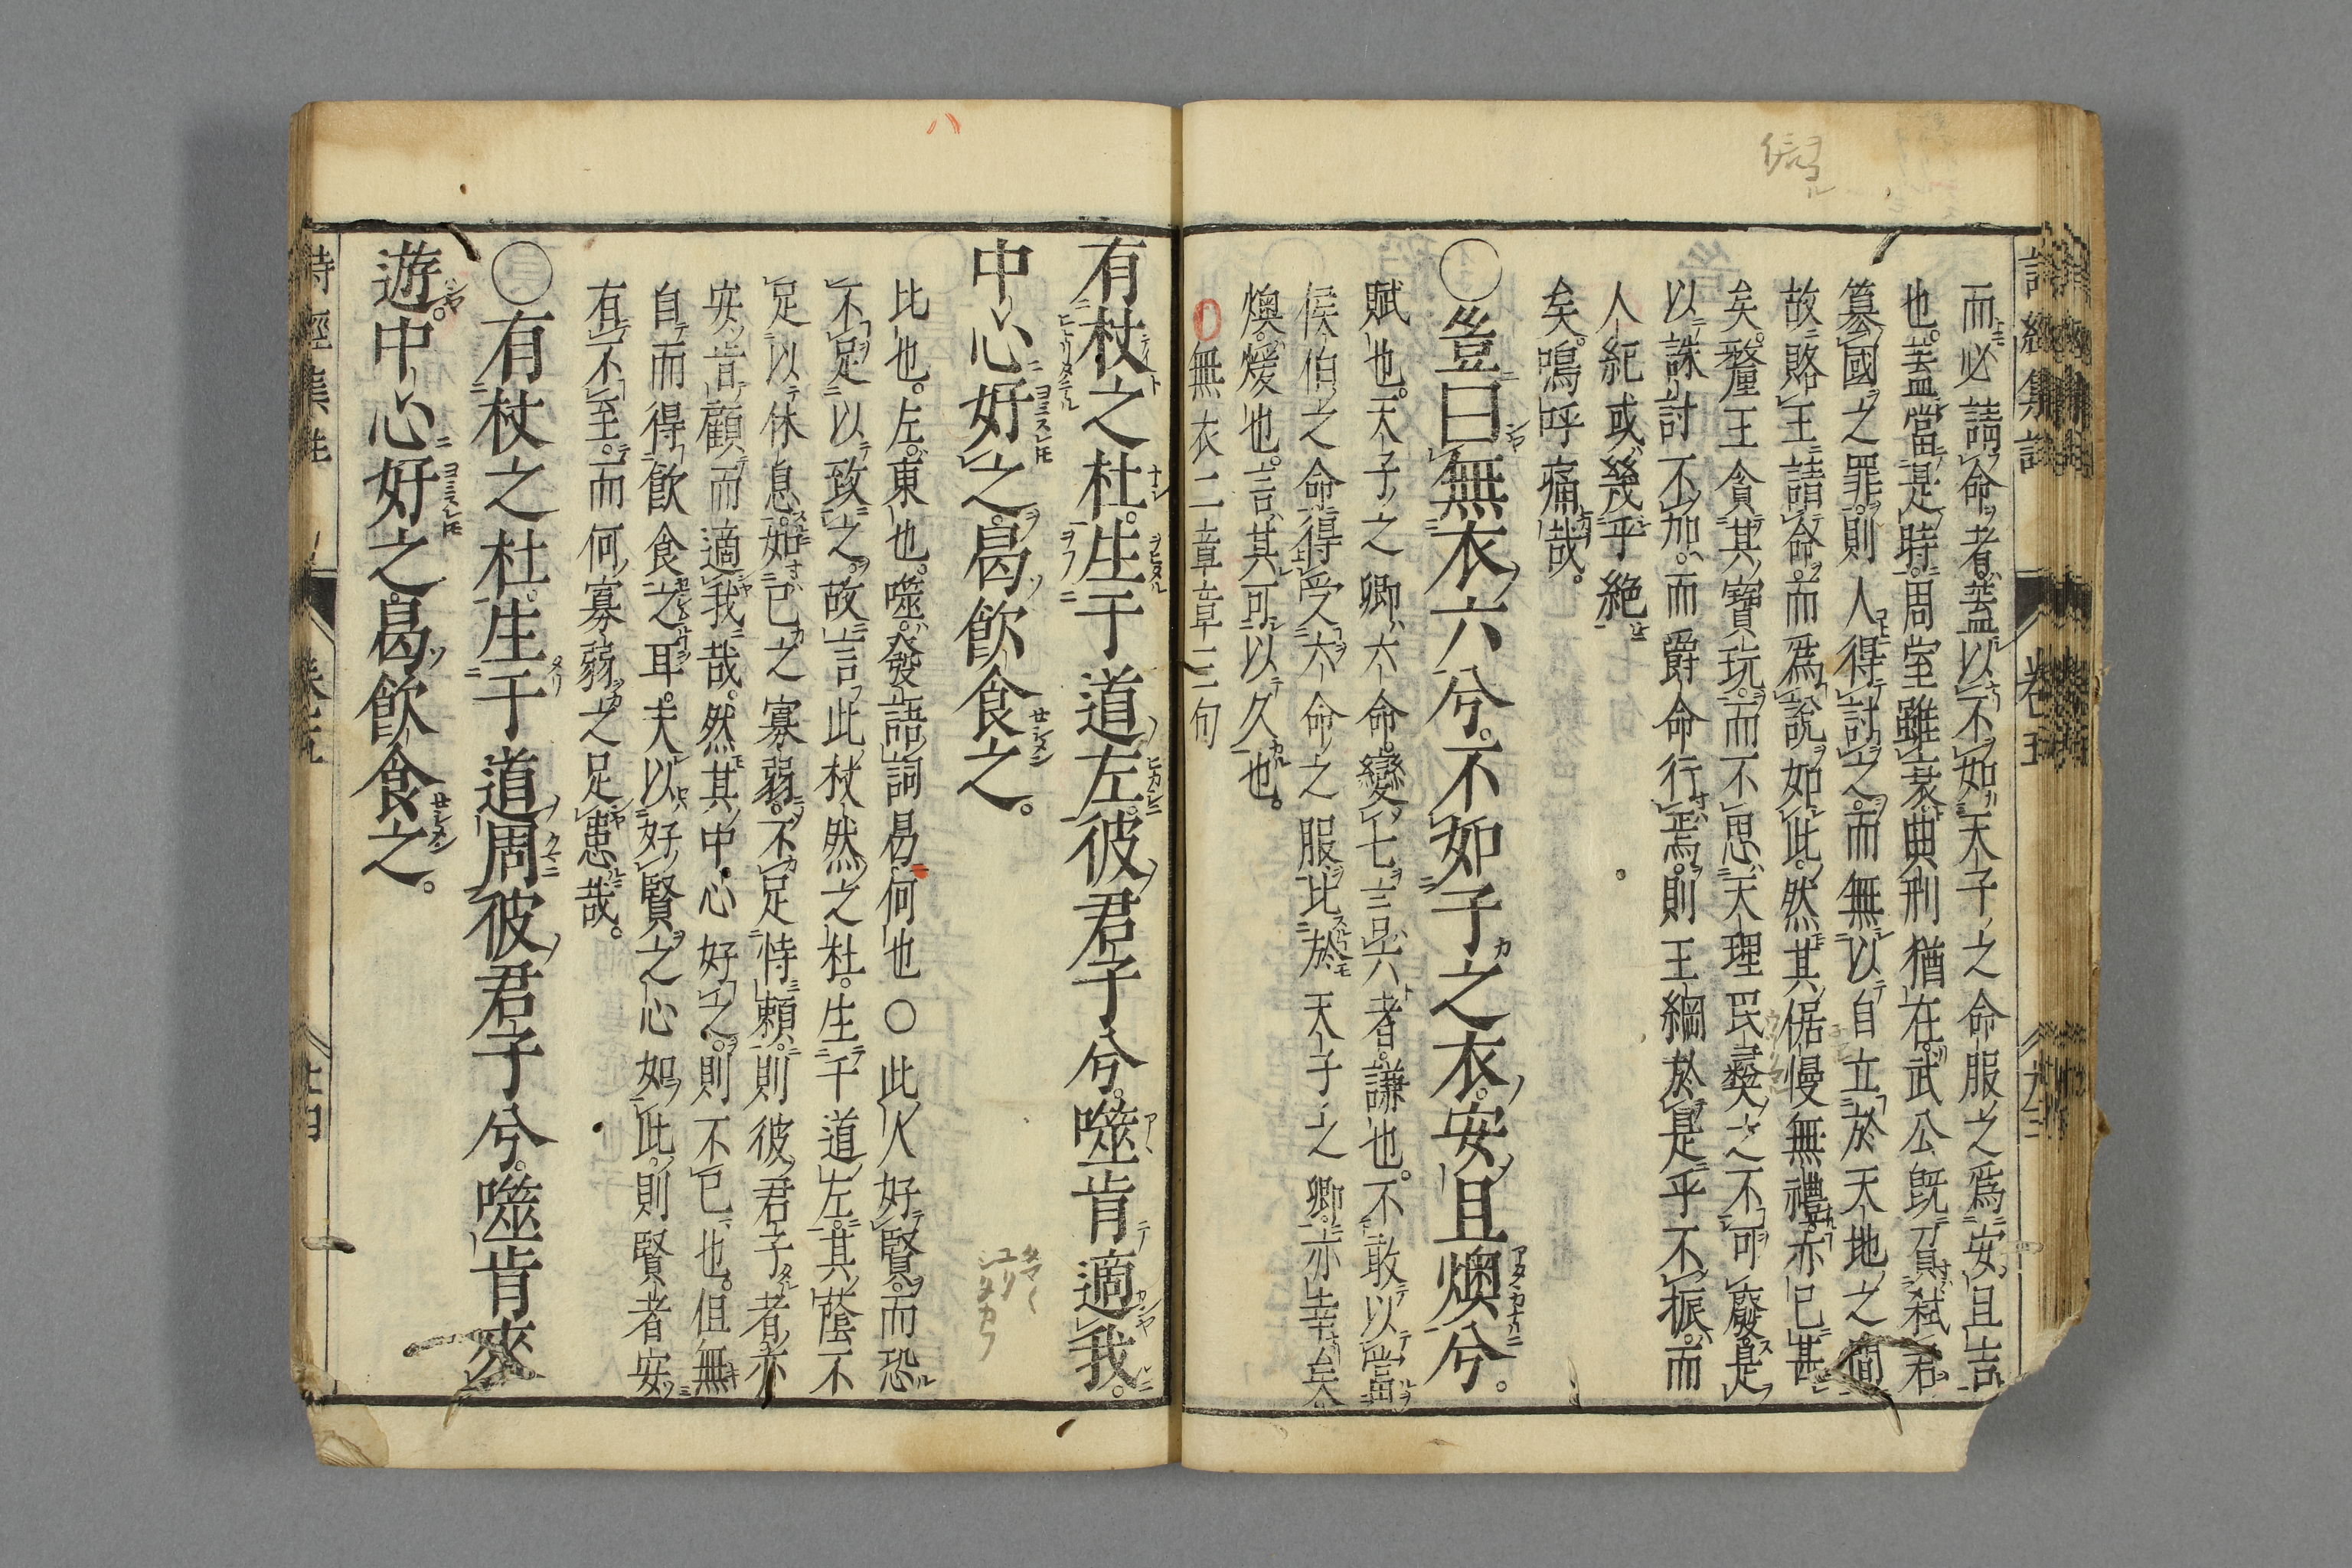 詩經集註
卷五
而必請命者蓋以不如天子之命服之爲安且吉
也。蓋當是時周室雖衰典刑猶在武公既負弑君
簒國之罪則人得討之而無以自立於天地之間
故賂王請命而爲說如此然其倨慢無禮亦已甚
矣釐王貪其寶玩而不思天理民彝之不可廢是
以誅討不加而爵命行焉則王綱於是乎不振而
人紀或幾乎絶
矣嗚呼痛哉。
〇豈曰無衣六兮。不如子之衣。安且燠兮。
賦也。天子之卿六命變七言六者謙也。不敢以當
侯伯之命得受六命之服比於天子之卿亦幸矣
燠煖也。言其可以久也。
無衣二章章三句
有杕之杜。生于道左。彼君子兮。噬肯適我。
中心好之。曷飲食之。
比也。左東也。噬發語詞曷何也〇此人好賢而恐
不足以致之。故言此杕然之杜。生于道左。其蔭不
足以休息。如己之寡弱。不足恃賴。則彼君子者亦
安肯顧而適我哉。然其中心好之。則不已也。但無
自而得飲食之耳。夫以好賢之心如此。則賢者安
有不至。而何寡弱之足患哉。
〇有杕之杜。生于道周。彼君子兮。噬肯來
遊。中心好之。曷飲食之。
詩經集註
卷五